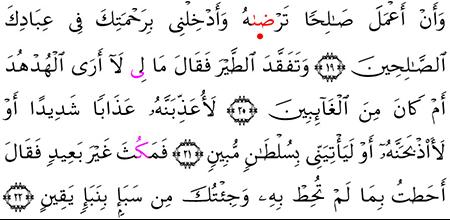 وَأَنْ أَعْمَلَ صَـٰلِحًا تَرْضَىٰهُ وَأَدْخِلْنِى بِرَحْمَتِكَ فِى عِبَادِكَ
ٱلصَّـٰلِحِينَ ﴿١٩﴾ وَتَفَقَّدَ ٱلطَّيْرَ فَقَالَ مَا لِى لَآ أَرَى ٱلْهُدْهُدَ
أَمْ كَانَ مِنَ ٱلْغَآئِبِينَ ﴿٢٠﴾ لَأُعَذِّبَنَّهُۥ عَذَابًا شَدِيدًا أَوْ
لَأَا۟ذْبَحَنَّهُۥٓ أَوْ لَيَأْتِيَنِّى بِسُلْطَـٰنٍ مُّبِينٍ ﴿٢١﴾ فَمَكُثَ غَيْرَ بَعِيدٍ فَقَالَ
أَحَطتُ بِمَا لَمْ تُحِطْ بِهِۦ وَجِئْتُكَ مِن سَبَإٍۭ بِنَبَإٍ يَقِينٍ ﴿٢٢﴾